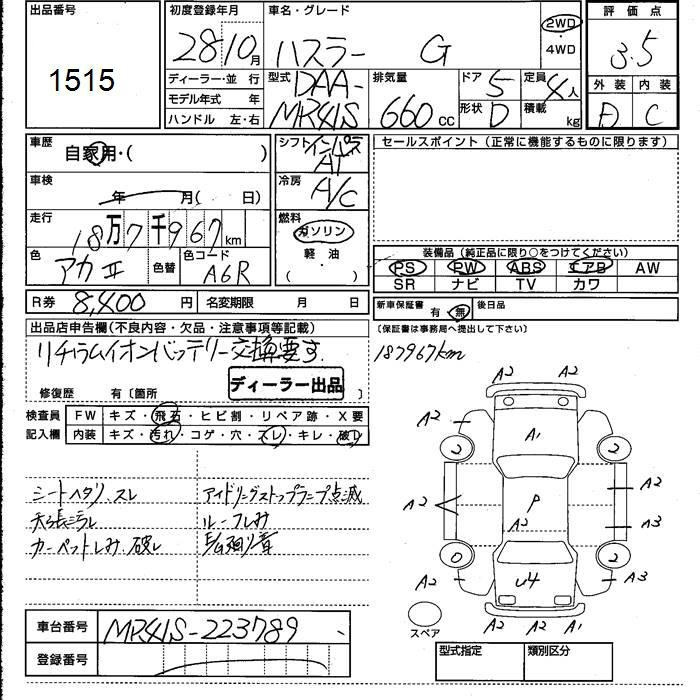 出品番号
1515
初度登録年月
28 10月
車名・グレード
ハスラー G
2WD
・
4WD
評価点
3.5
ディーラー・並 行
モデル年式 年
ハンドル 左・右
型式
DAA-
MR41S
排気量
660 cc
ドア 5
形状 D
定員 4人
積載 kg
外装 内装
D C
車歴
自家用・( )
車検
年 月( 日)
走行
18万7千967km
色
アカⅡ
色替
色コード
A6R
シフト インパネ
AT
冷房
A/C
燃料
ガソリン
軽油
( )
セールスポイント (正常に機能するものに限ります)
装備品 (純正品に限り○をつけてください)
PS PW ABS エアB AW
SR ナビ TV カワ
R券 8,400 円
名変期限 月 日
新車保証書 有・無
後日品
(保証書は事務局へ提出して下さい)
出品店申告欄(不良内容・欠品・注意事項等記載)
リチウムイオンバッテリー交換要す
修復歴 有〔箇所 〕
ディーラー出品
187967km
検査員
記入欄
FW キズ・飛石・ヒビ割・リペア跡・X要
内装 キズ・汚れ・コゲ・穴・スレ・キレ・破レ
シートヘタリ、スレ
天張ニラレ
カーペットしみ、破レ
アイドリングストップランプ点滅
ルーフしみ
車台番号 MR41S-223789
登録番号
A2 A2
A2
A1
2 2
A2
P
A2
A2
A3
0 2
A2
U4
A3
A2 A2 A1
スペア
型式指定
類別区分